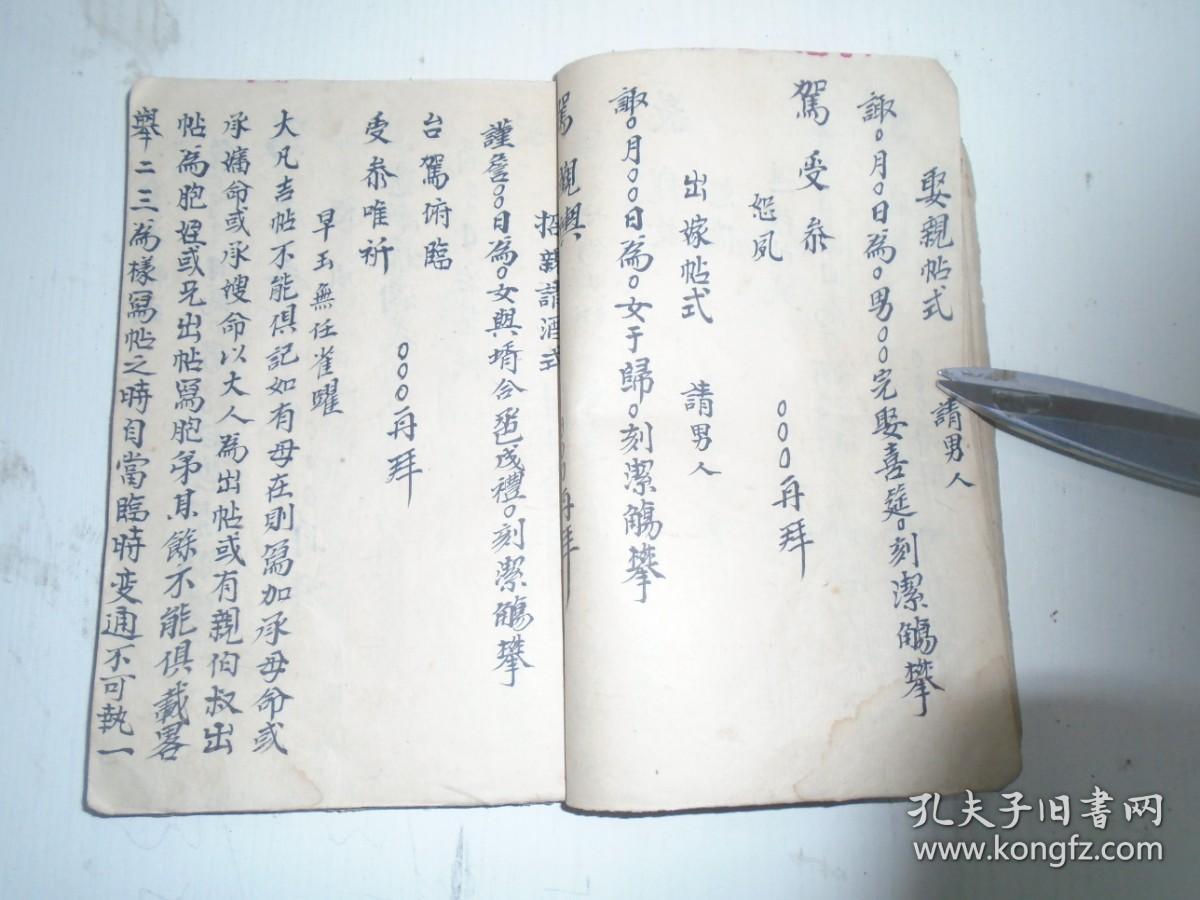 娶親帖式 請男人
諏○月○日為○男○○完娶喜筵○刻潔觴攀
駕受叅
恕夙 ○○○再拜
出嫁帖式 請男人
諏○月○○日為○女于歸○刻潔觴攀
駕觀與 ○○○再拜
招親請酒式
謹詹○○日為○女與壻合卺成禮○刻潔觴攀
台駕俯臨
受叅唯祈 ○○○再拜
早玉無任雀躍
大凡吉帖不能俱記如有母在則寫加承母命或
承孀命或承嫂命以大人為出帖或有親伯叔出
帖為胞姪或兄出帖寫胞弟其餘不能俱載畧
舉二三為樣寫帖之時自當臨時变通不可執一
孔夫子旧书网
www.kongfz.com